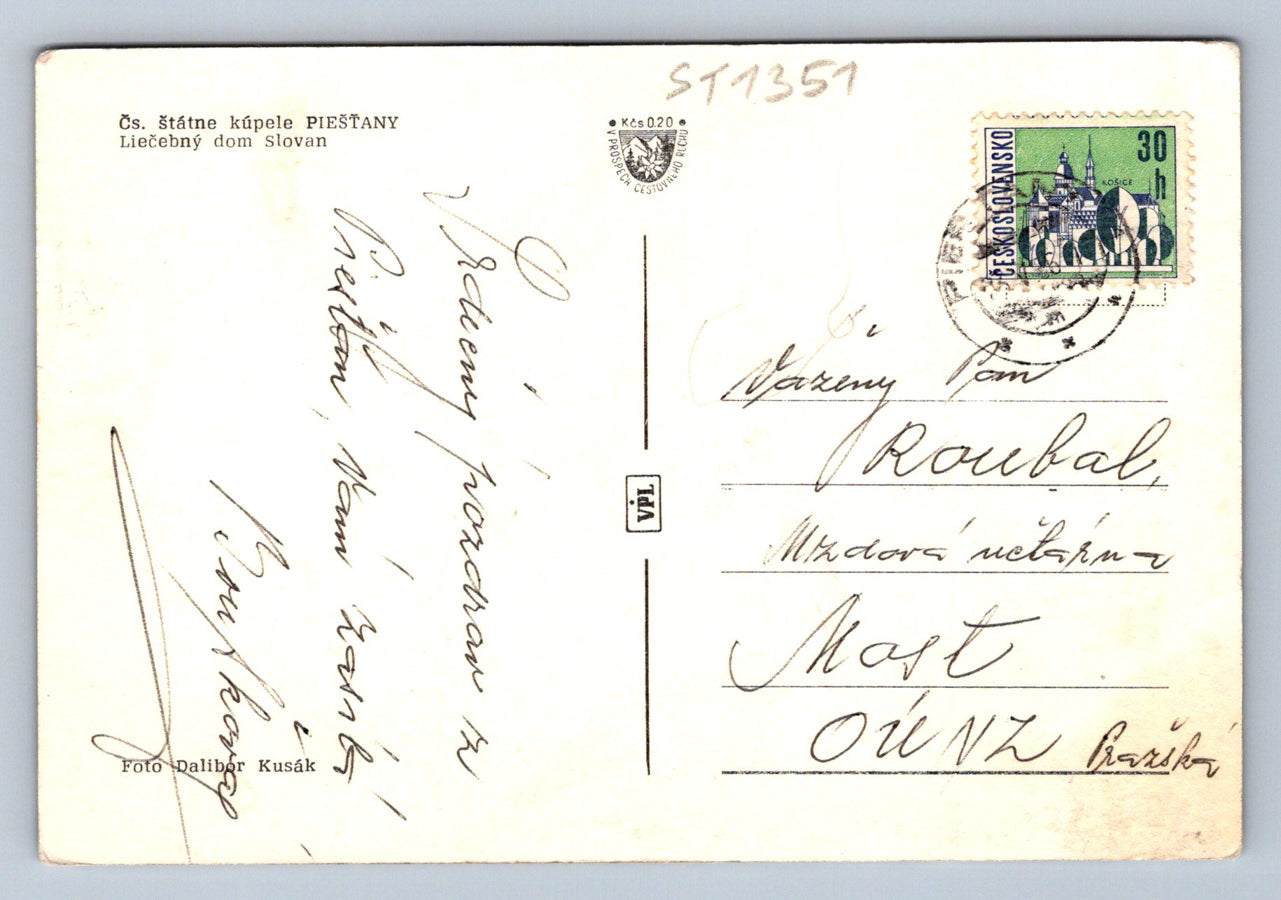 ST1351
Čs. štátne kúpele PIEŠŤANY
Liečebný dom Slovan
Kčs 0.20
V PROSPECH CESTOVNÉHO RUCHU
ČESKOSLOVENSKO
30 h
KOŠICE
PIEŠ
Srdečný pozdrav z
Piešťan, Vám zasílá
VPL
Vážený Pan
Roubal,
Mzdová učtárna
Most
OÚNZ Pražská
Foto Dalibor Kusák